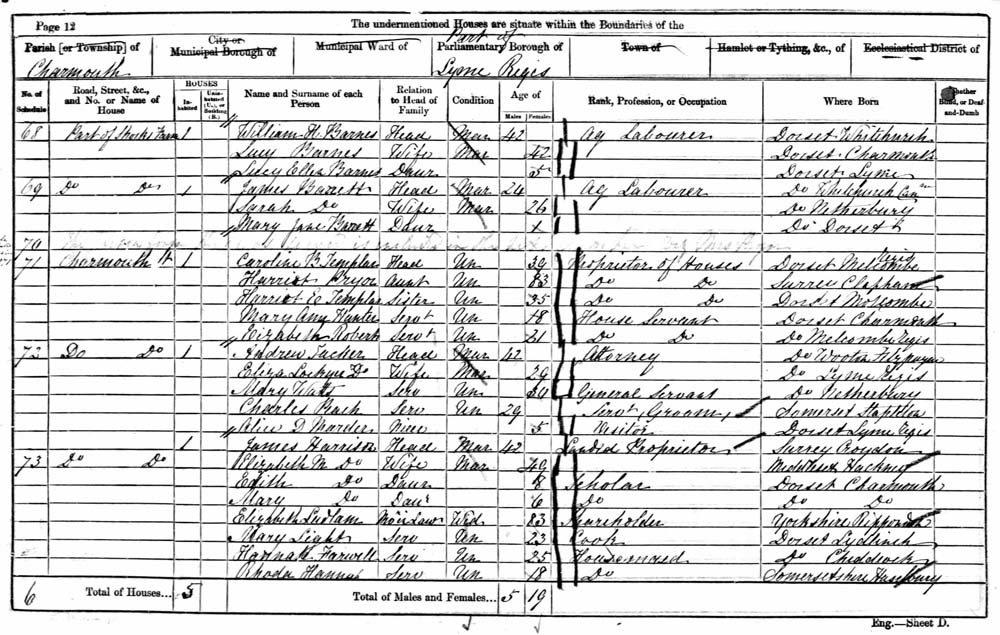 Page 12
The undermentioned Houses are situate within the Boundaries of the
Parish [or Township] of City or Municipal Borough of Municipal Ward of Part of Parliamentary Borough of Town of Hamlet or Tything, &c., of Ecclesiastical District of
Charmouth Lyme Regis
No. of Schedule Road, Street, &c., and No. or Name of House HOUSES Inhabited Uninhabited (U.), or Building (B.) Name and Surname of each Person Relation to Head of Family Condition Age of Males Females Rank, Profession, or Occupation Where Born Whether Blind, or Deaf-and-Dumb
68 Part of Farm 1 William H. Barnes Head Mar 42 Ag Labourer Dorset Whitchurch
Lucy Barnes Wife Mar 42 Dorset Charmouth
Lucy Ellen Barnes Daur 5 Dorset Lyme
69 Do Do 1 James Barrett Head Mar 24 Ag Labourer Do Whitchurch Can
Sarah Do Wife Mar 26 Do Netherbury
Mary Jane Barrett Daur Do Dorset
70
71 Charmouth St 1 Caroline B. Templar Head Un 39 Proprietor of Houses Dorset Melcombe Regis
Harriot Pryor Aunt Un 83 Do Do Surrey Clapham
Harriot E Templar Sister Un 35 Do Do Dorset Melcombe
Mary Ann Hunter Servt Un 18 House Servant Dorset Charmouth
Elizabeth Roberts Servt Un 21 Do Do Do Melcombe Regis
72 Do Do 1 Andrew Tucker Head Mar 42 Attorney Do Wootton Fitzpayne
Eliza Do Wife Mar 29 Do Lyme Regis
Mary Watts Serv Un General Servant Do Netherbury
Charles Bach Serv Un 29 Servt Groom Somerset
D Marder Niece 5 Visitor Dorset Lyme Regis
1 James Harrison Head Mar 42 Landed Proprietor Surrey Croydon
73 Do Do Elizabeth M Do Wife Mar 40 Middlesex Hackney
Edith Do Daur 8 Scholar Dorset Charmouth
Mary Do Daur 6 Do Do Do
Elizabeth Ludlam Mor in Law Wid 83 Shareholder Yorkshire
Mary Light Serv Un 23 Cook Dorset Lydlinch
Hannah Farwell Serv Un 25 Housemaid Do Chiddock
Rhoda Hannan Serv Un 18 Do Somersetshire
6 Total of Houses... 5 Total of Males and Females... 5 19
Eng.—Sheet D.